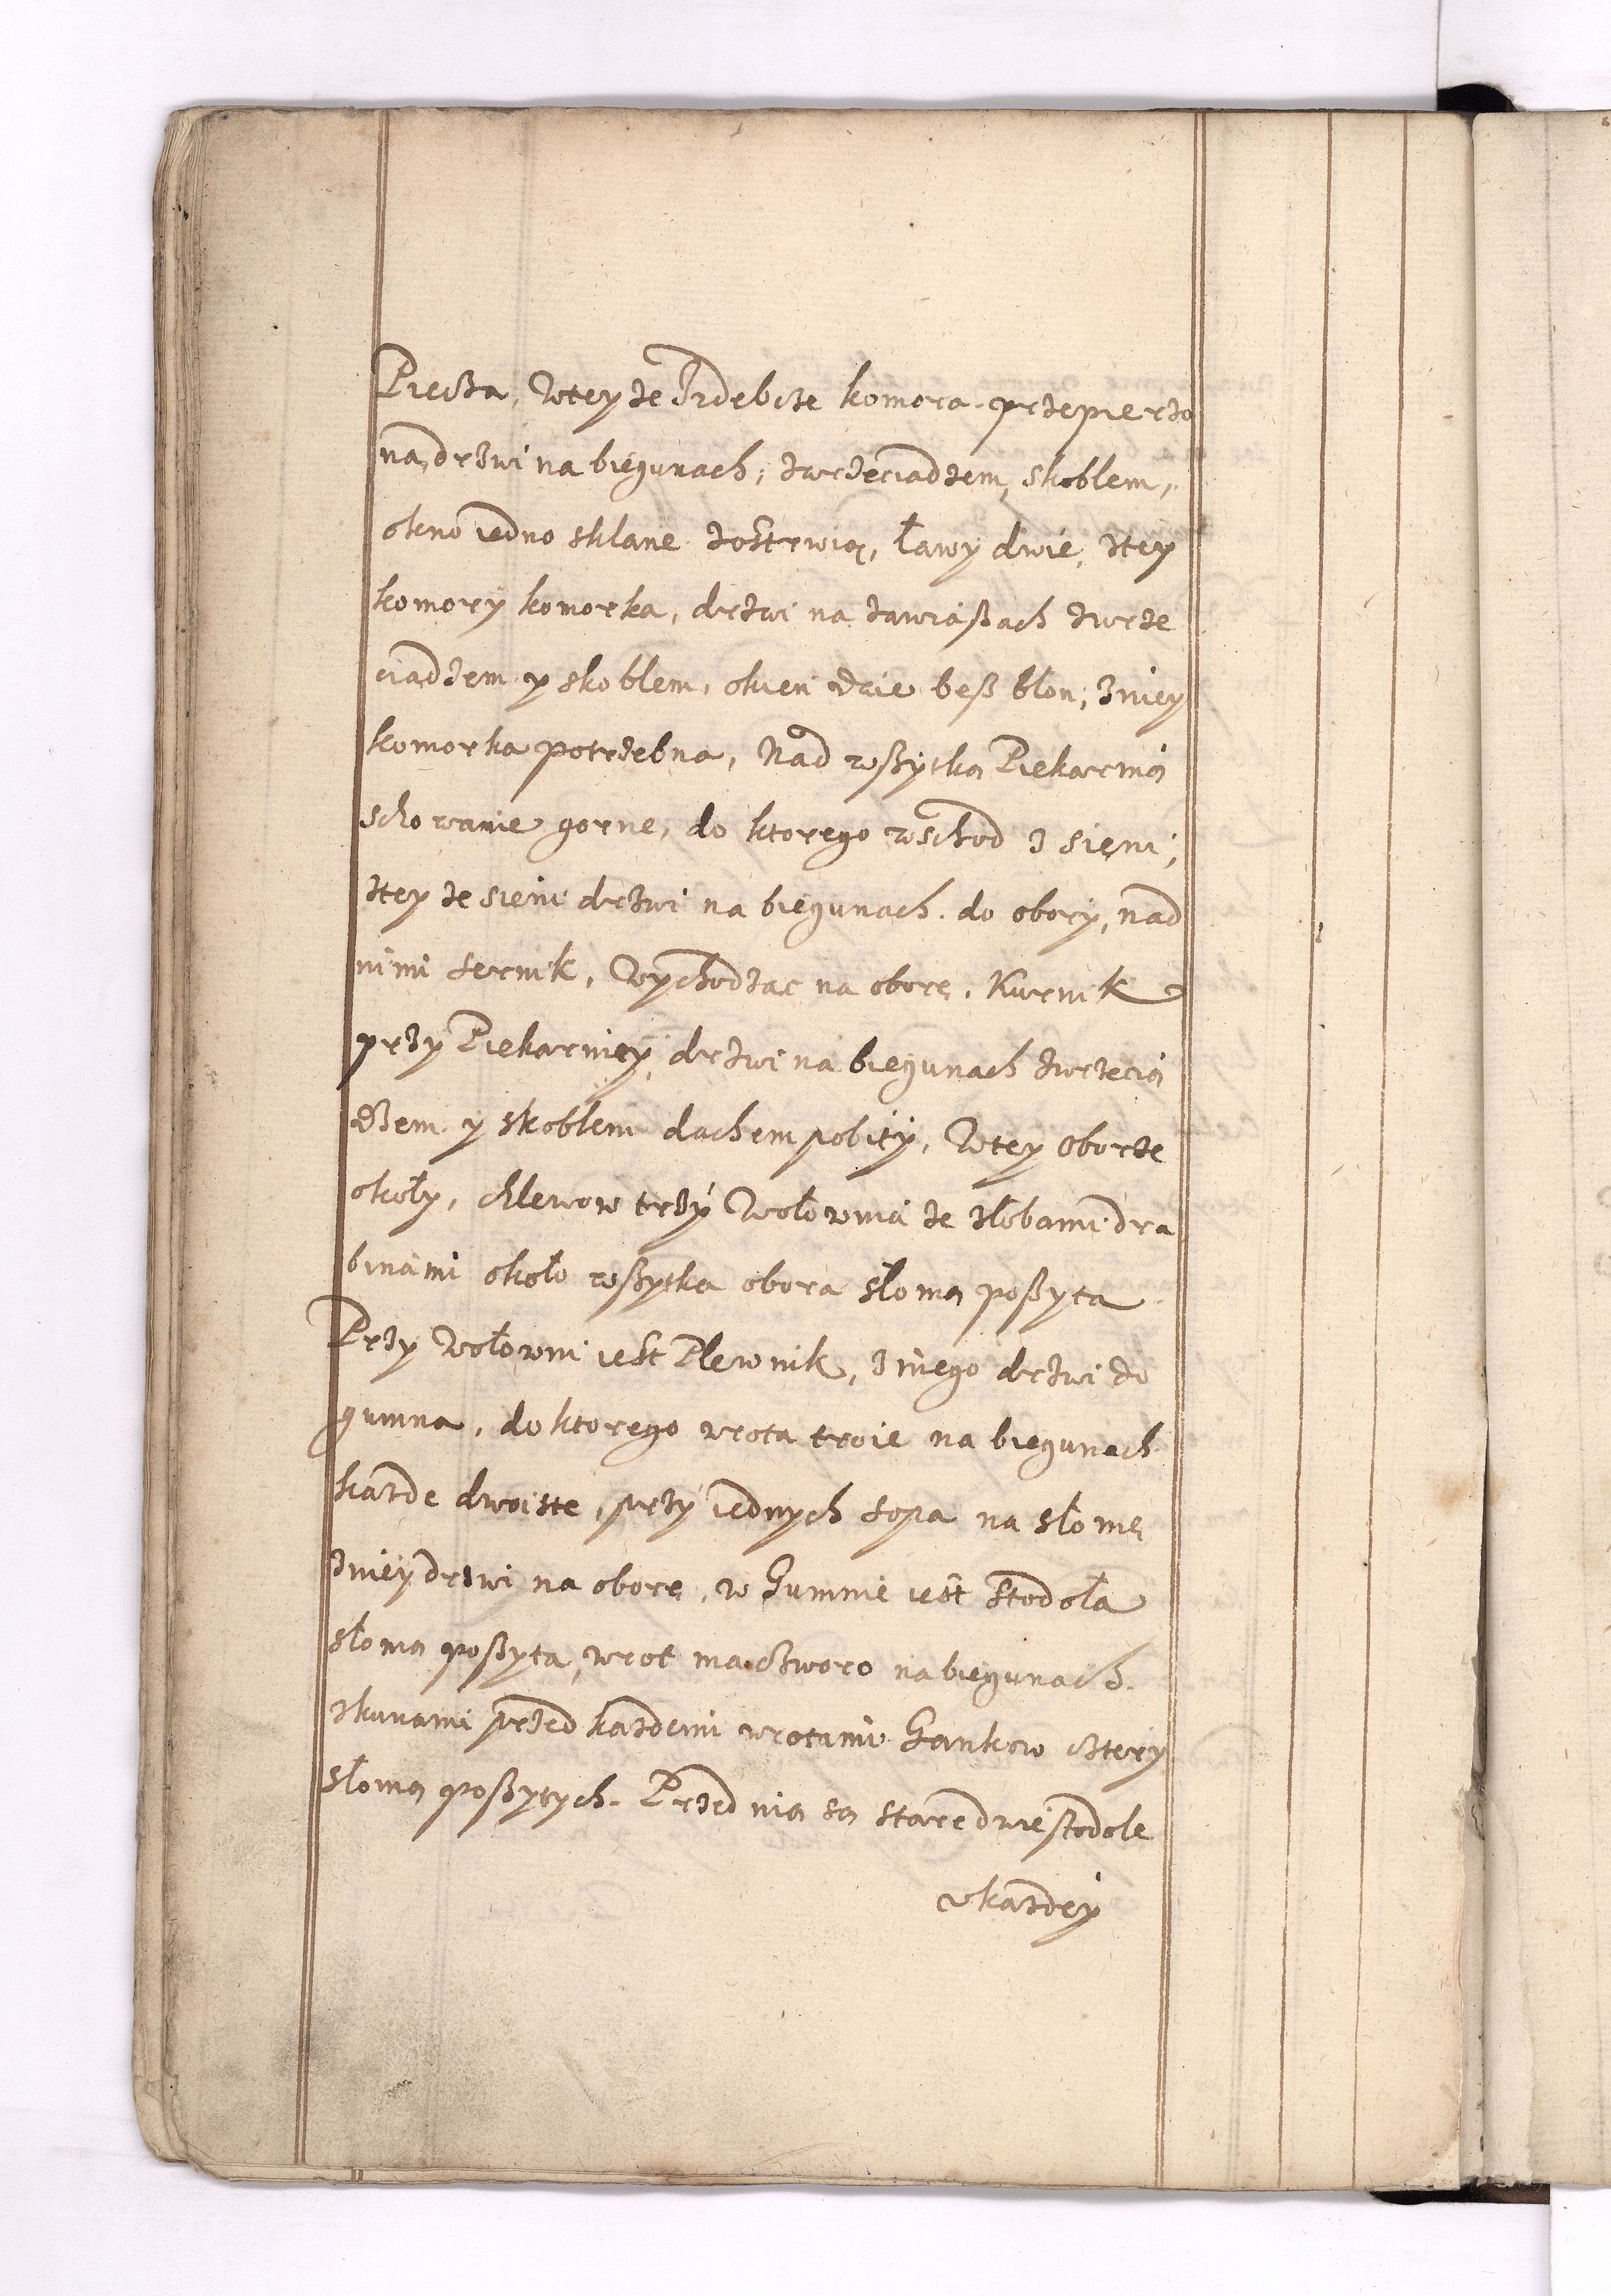 Piecza, Wtey ze Izdebcze komora przepierzo
na, drzwi na biegunach, zwrzeciadzem, skoblem,
okno iedno sklane zostrwią, ławy dwie, ztey
komory komorka, drzwi na zawiaßach zwrze
ciadzem y skoblem, okien dwie beß błon, zniey
komorka potrzebna, Nad wßytką Piekarnią
schowanie gorne, do ktorego wschod z sieni,
ztey ze sieni drzwi na biegunach do obory, nad
nimi sernik, Wychodząc na oborę, Kurnik
przy Piekarniey, drzwi na biegunach zwrzecią
dzem y skoblem dachem pobity, Wtey oborze
okoły, chlewow trzy Wołownia ze złobami dra
binami około wßytka obora słomą poßyta
Przy Wołowni iest Plewnik, z niego drzwi do
gumna, do ktorego wrota troie na biegunach
kazde dwoiste, przy iednych sopa na słomę
zniey drzwi na oborę, w Gumnie iest stodoła
słomą poßyta, wrot ma czworo na biegunach
zkunami przed kazdemi wrotami Gankow cztery
słomą poßytych. Przed nią są stare dwie stodole
wkazdey